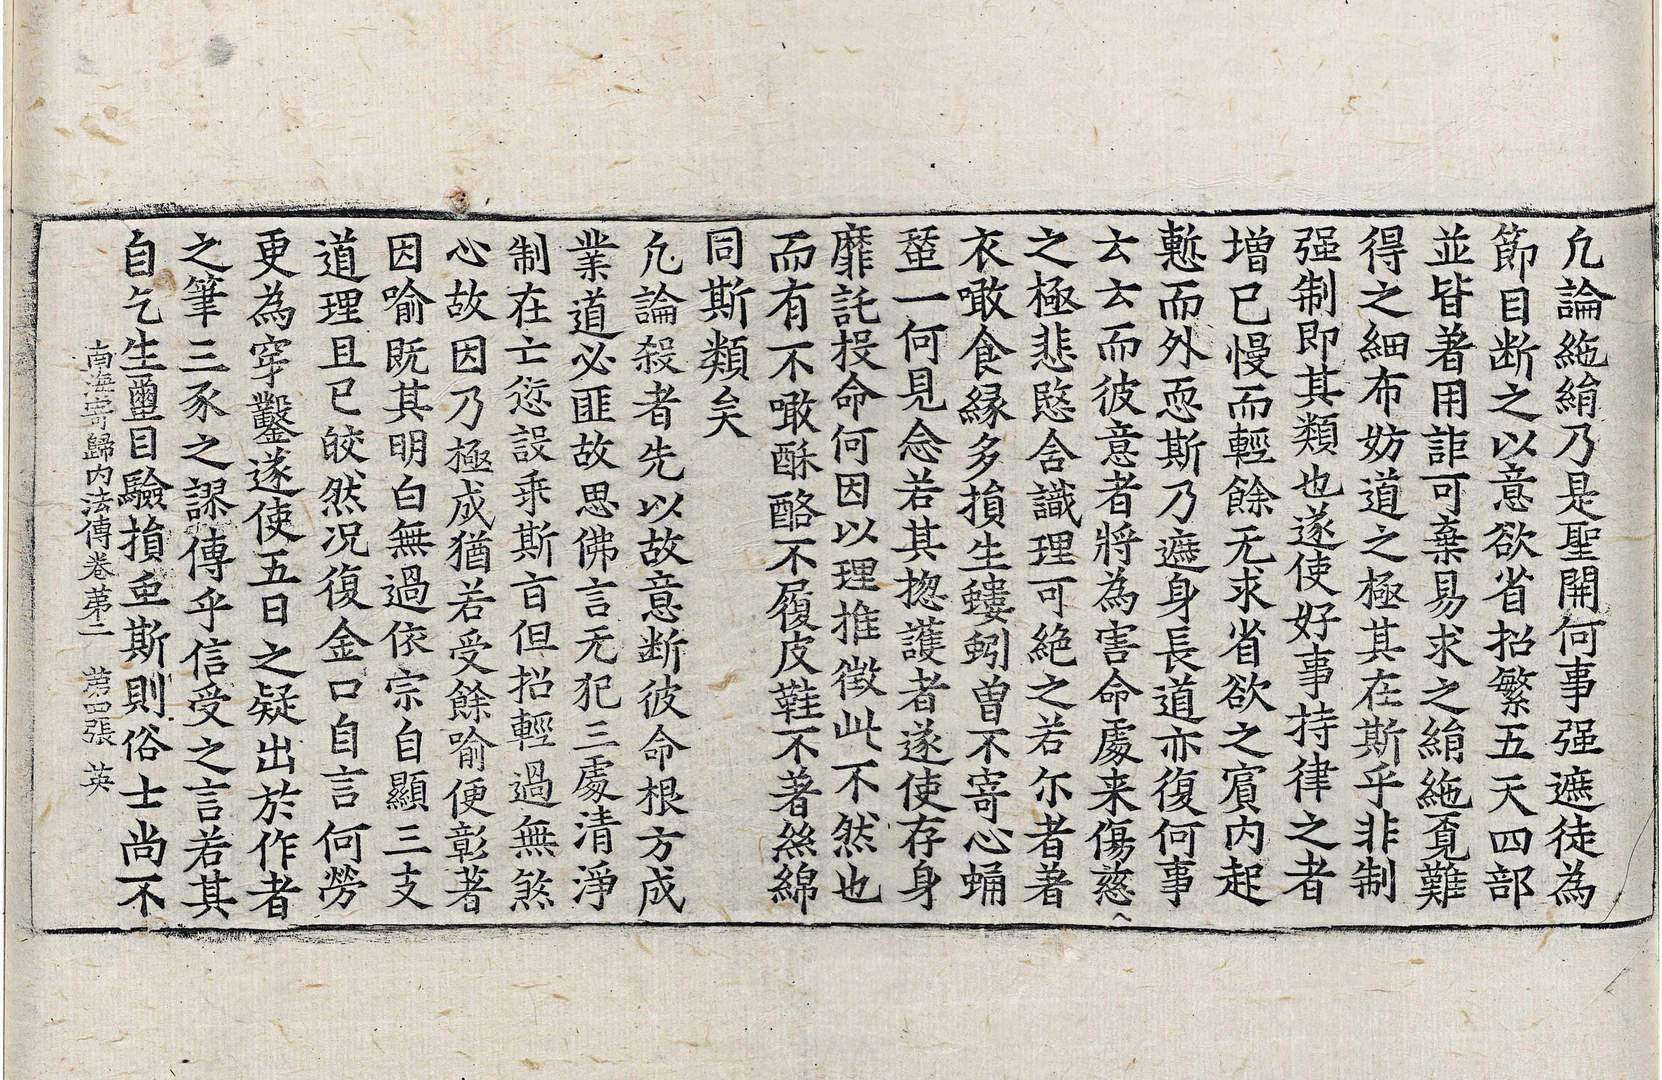 凢論絁絹乃是聖開何事强遮徒為
節目断之以意欲省招繁五天四部
並皆著用詎可棄易求之絹絁覔難
得之細布妨道之極其在斯乎非制
强制即其類也遂使好事持律之者
增已慢而輕餘无求省欲之賔内起
慙而外恧斯乃遮身長道亦復何事
云云而彼意者將為害命處来傷慈
之極悲愍含識理可絶之若尔者著
衣噉食縁多損生螻蚓曽不寄心蛹
蠶一何見念若其揔護者遂使存身
靡託投命何因以理推徴此不然也
而有不噉酥酪不履皮鞋不著絲綿
同斯類矣
凢論殺者先以故意断彼命根方成
業道必匪故思佛言无犯三處清淨
制在亡愆設乖斯盲但招輕過無煞
心故因乃極成猶若受餘喻便彰著
因喻既其明白無過依宗自顯三支
道理且已皎然况復金口自言何勞
更為穿鑿遂使五日之疑出於作者
之筆三豕之謬傳乎信受之言若其
自乞生蠒目驗損虫斯則俗士尚不
南海寄歸内法傳卷苐二　苐四張　英